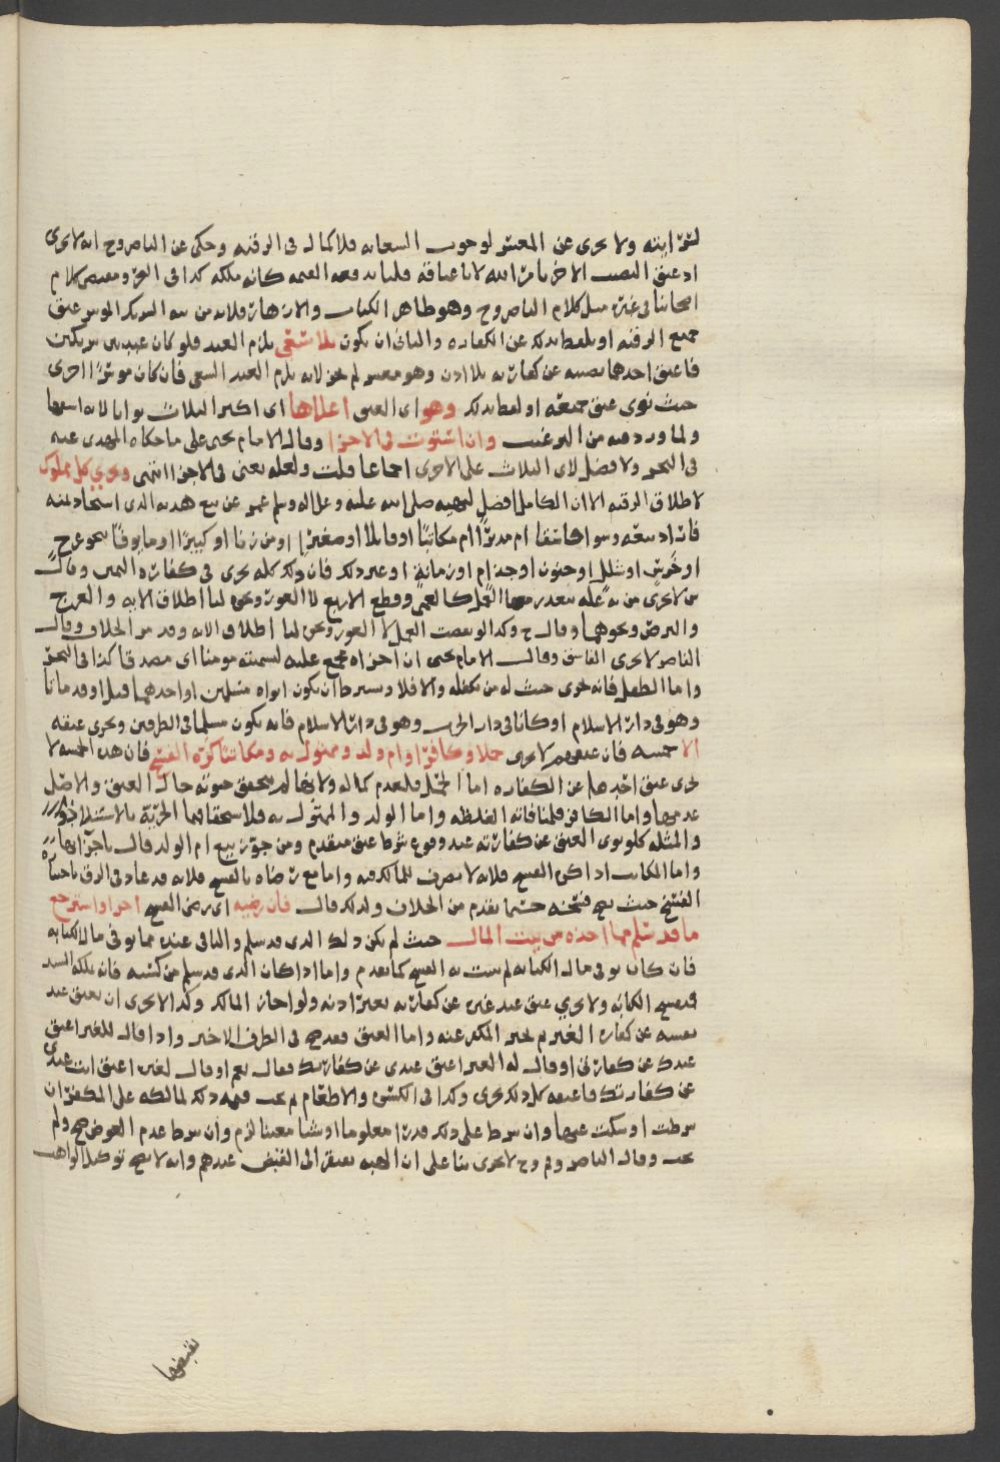 لسرايته ولا يجزي عن المعسر لوجوب السعاية فلا كمال في الرقبة وحكى عن الناصر وح انه لا يجزي
اذ عتق النصيب الاخر بامر الله لا باعتاقه قلنا بدفعه القيمة كانه ملكه كذا في البحر ومقتضى كلام
اصحابنا في غيره مثل كلام الناصر وح وهو ظاهر الكتاب والازهار فلابد من نية الشريك الموسر عتق
جميع الرقبة او بلفظ بذلك عن الكفارة والثاني ان يكون بلا سعي يلزم العبد فلو كان عبد بين شريكين
فاعتق احدهما نصيبه عن كفارته بلا اذن وهو معسر لم يجز لانه يلزم العبد السعي فان كان موسرا اجزى
حيث نوى عتق جميعه او لفظ بذلك وهو اي العتق اعلاها اي اكثر الثلاث ثوابا لانه اشقها
ولما ورد فيه من الترغيب وان استوت في الاجزا وقال الامام يحيى على ما حكاه المهدي عنه
في البحر ولا فضل لاي الثلاث على الاخرى اجماعا قلت ولعله يعني في الاجزا انتهى ويجزي كل مملوك
لاطلاق الرقبة الا ان الكامل افضل لنهيه صلى الله عليه وعلى اله وسلم عمر عن بيع هديه الذي استجاد ثمنه
فاراد بيعه وسوا كان قنا ام مدبرا ام مكاتبا او قاتلا او صغيرا او من زنا او كبيرا او مأيوفا بنحو عرج
او خرس او شلل او جنون او جذام او زمانة او غير ذلك فان ذلك كله يجزي في كفارة اليمين وقال
ش لا يجزي من به علة يتعذر معها العمل كالعمى وقطع الاربع لا العور ونحوه لنا اطلاق الاية والعرج
والبرص ونحوهما وقال ح وكذا لو نقصت العمل لا العور ونحوه لنا اطلاق الاية وقد مر الخلاف وقال
الناصر لا يجزي الفاسق وقال الامام يحيى ان اجزاه مجمع عليه لتسميته مومنا اي مصدقا كذا في البحر
واما الطفل فانه يجزي حيث له من يكفله والا فلا ويشترط ان يكون ابواه مسلمين او احدهما قبل او قد ماتا
وهو في دار الاسلام او كانا في دار الحرب وهو في دار الاسلام فانه يكون مسلما في الطرفين ويجزي عتقه
الا خمسة فان عتقهم لا يجزي حملا وكافرا وام ولد وممثول به ومكاتبا كره الفسخ فان هذه الخمسة لا
يجزي عتق احدها عن الكفارة اما الحمل فلعدم كماله ولانها لم يتحقق حيوته حال العتق والاصل
عدمها واما الكافر فلمنافاته الغلظة واما ام الولد والممثول به فلاستحقاقهما الحرية بالاستيلاد
والمثلة فلو نوى العتق عن كفارته عند وقوع شرط عتق متقدم ومن جوز بيع ام الولد قال باجزائها
واما المكاتب اذا كره الفسخ فلانه لا تصرف للمالك فيه واما مع رضاه بالفسخ فلانه قد عاد في الرق باختياره
الفسخ حيث يصح فسخه حسبما تقدم من الخلاف ولذلك قال فان رضيه اي رضي الفسخ اجزا واسترجع
ما قد سلم مما اخذه من بيت المال حيث لم يكن ذلك الذي قد سلم والباقي عنده مما يوفي مال الكتابة
فان كان يوفي مال الكتابة لم يثبت به الفسخ كما تقدم واما اذا كان الذي قد سلم من كسبه فانه يملكه السيد
بفسخ الكتابة ولا يجزي عتق عبد غيره عن كفارته بغير اذنه ولو اجاز المالك وكذا لا يجزي ان يعتق عبد
نفسه عن كفارة الغير لم يجز المكفر عنه واما العتق فقد صح في الطرف الاخير واذا قال للغير اعتق
عبدك عن كفارتي او قال له الغير اعتق عبدي عن كفارتك فقال نعم او قال لغيره اعتق انت عبدي
عن كفارتك فاعتقه كل ذلك يجزي وكذا في الكسوة والاطعام ثم يجب قيمة ذلك لمالكه على المكفر ان
شرطت او سكت عنها وان شرط على ذلك قدرا معلوما او شيا معينا لزم وان شرط عدم العوض صح ولم
يجب وقال الناصر وم وح لا يجزي بنا على ان الهبة تفتقر الى القبض عندهم وانه لا يصح توكيل الواهب
بقبضها